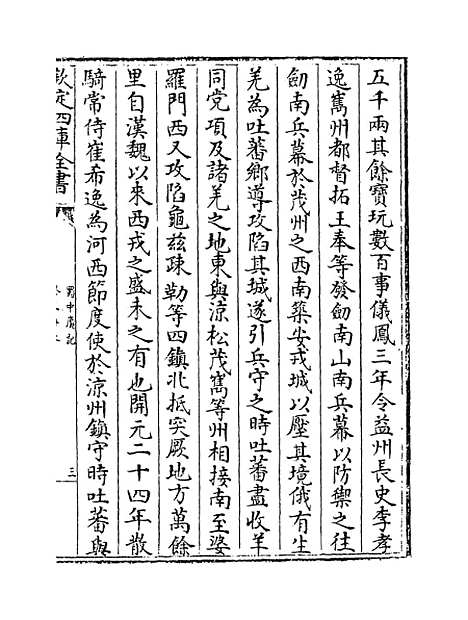 五千兩其餘寶玩數百事儀鳳三年令益州長史李孝
逸嶲州都督拓王奉等發劒南山南兵募以防禦之往
劒南兵募於茂州之西南築安戎城以壓其境俄有生
羌為吐蕃鄉導攻陷其城遂引兵守之時吐蕃盡收羊
同党項及諸羌之地東與涼松茂嶲等州相接南至婆
羅門西又攻陷龜兹疎勒等四鎮北抵突厥地方萬餘
里自漢魏以來西戎之盛未之有也開元二十四年散
騎常侍崔希逸為河西節度使於涼州鎮守時吐蕃與
欽定四庫全書
蜀中廣記
三